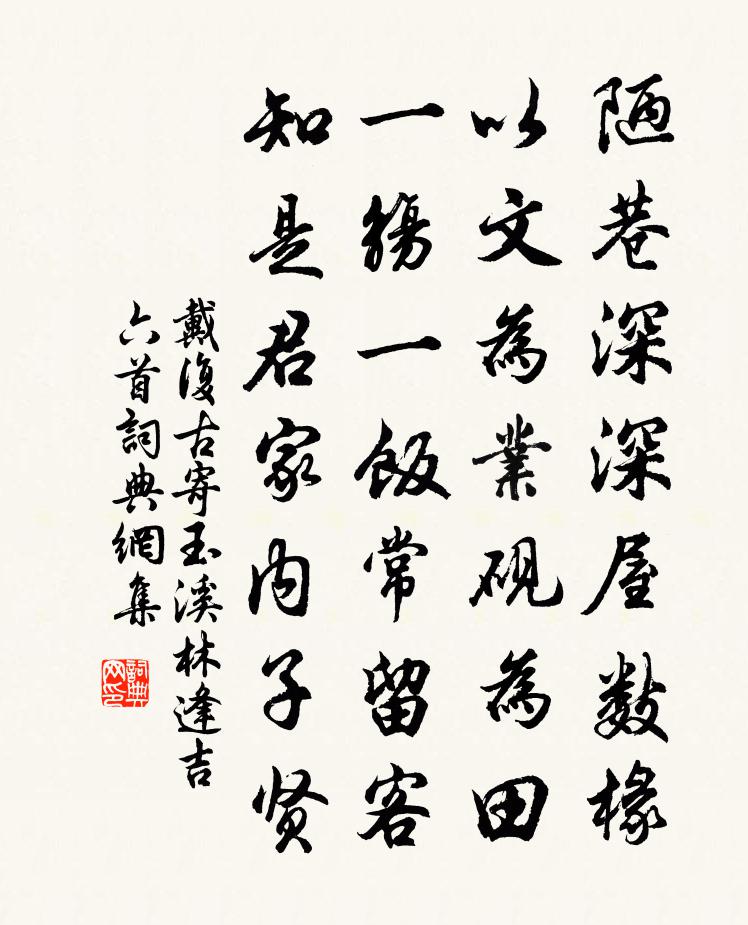 陋巷深深屋数椽
以文為業砚為田
一觞一飯常留客
知是君家内子贤
戴復古寄玉溪林逢吉
六首詞典網集
詞典網印